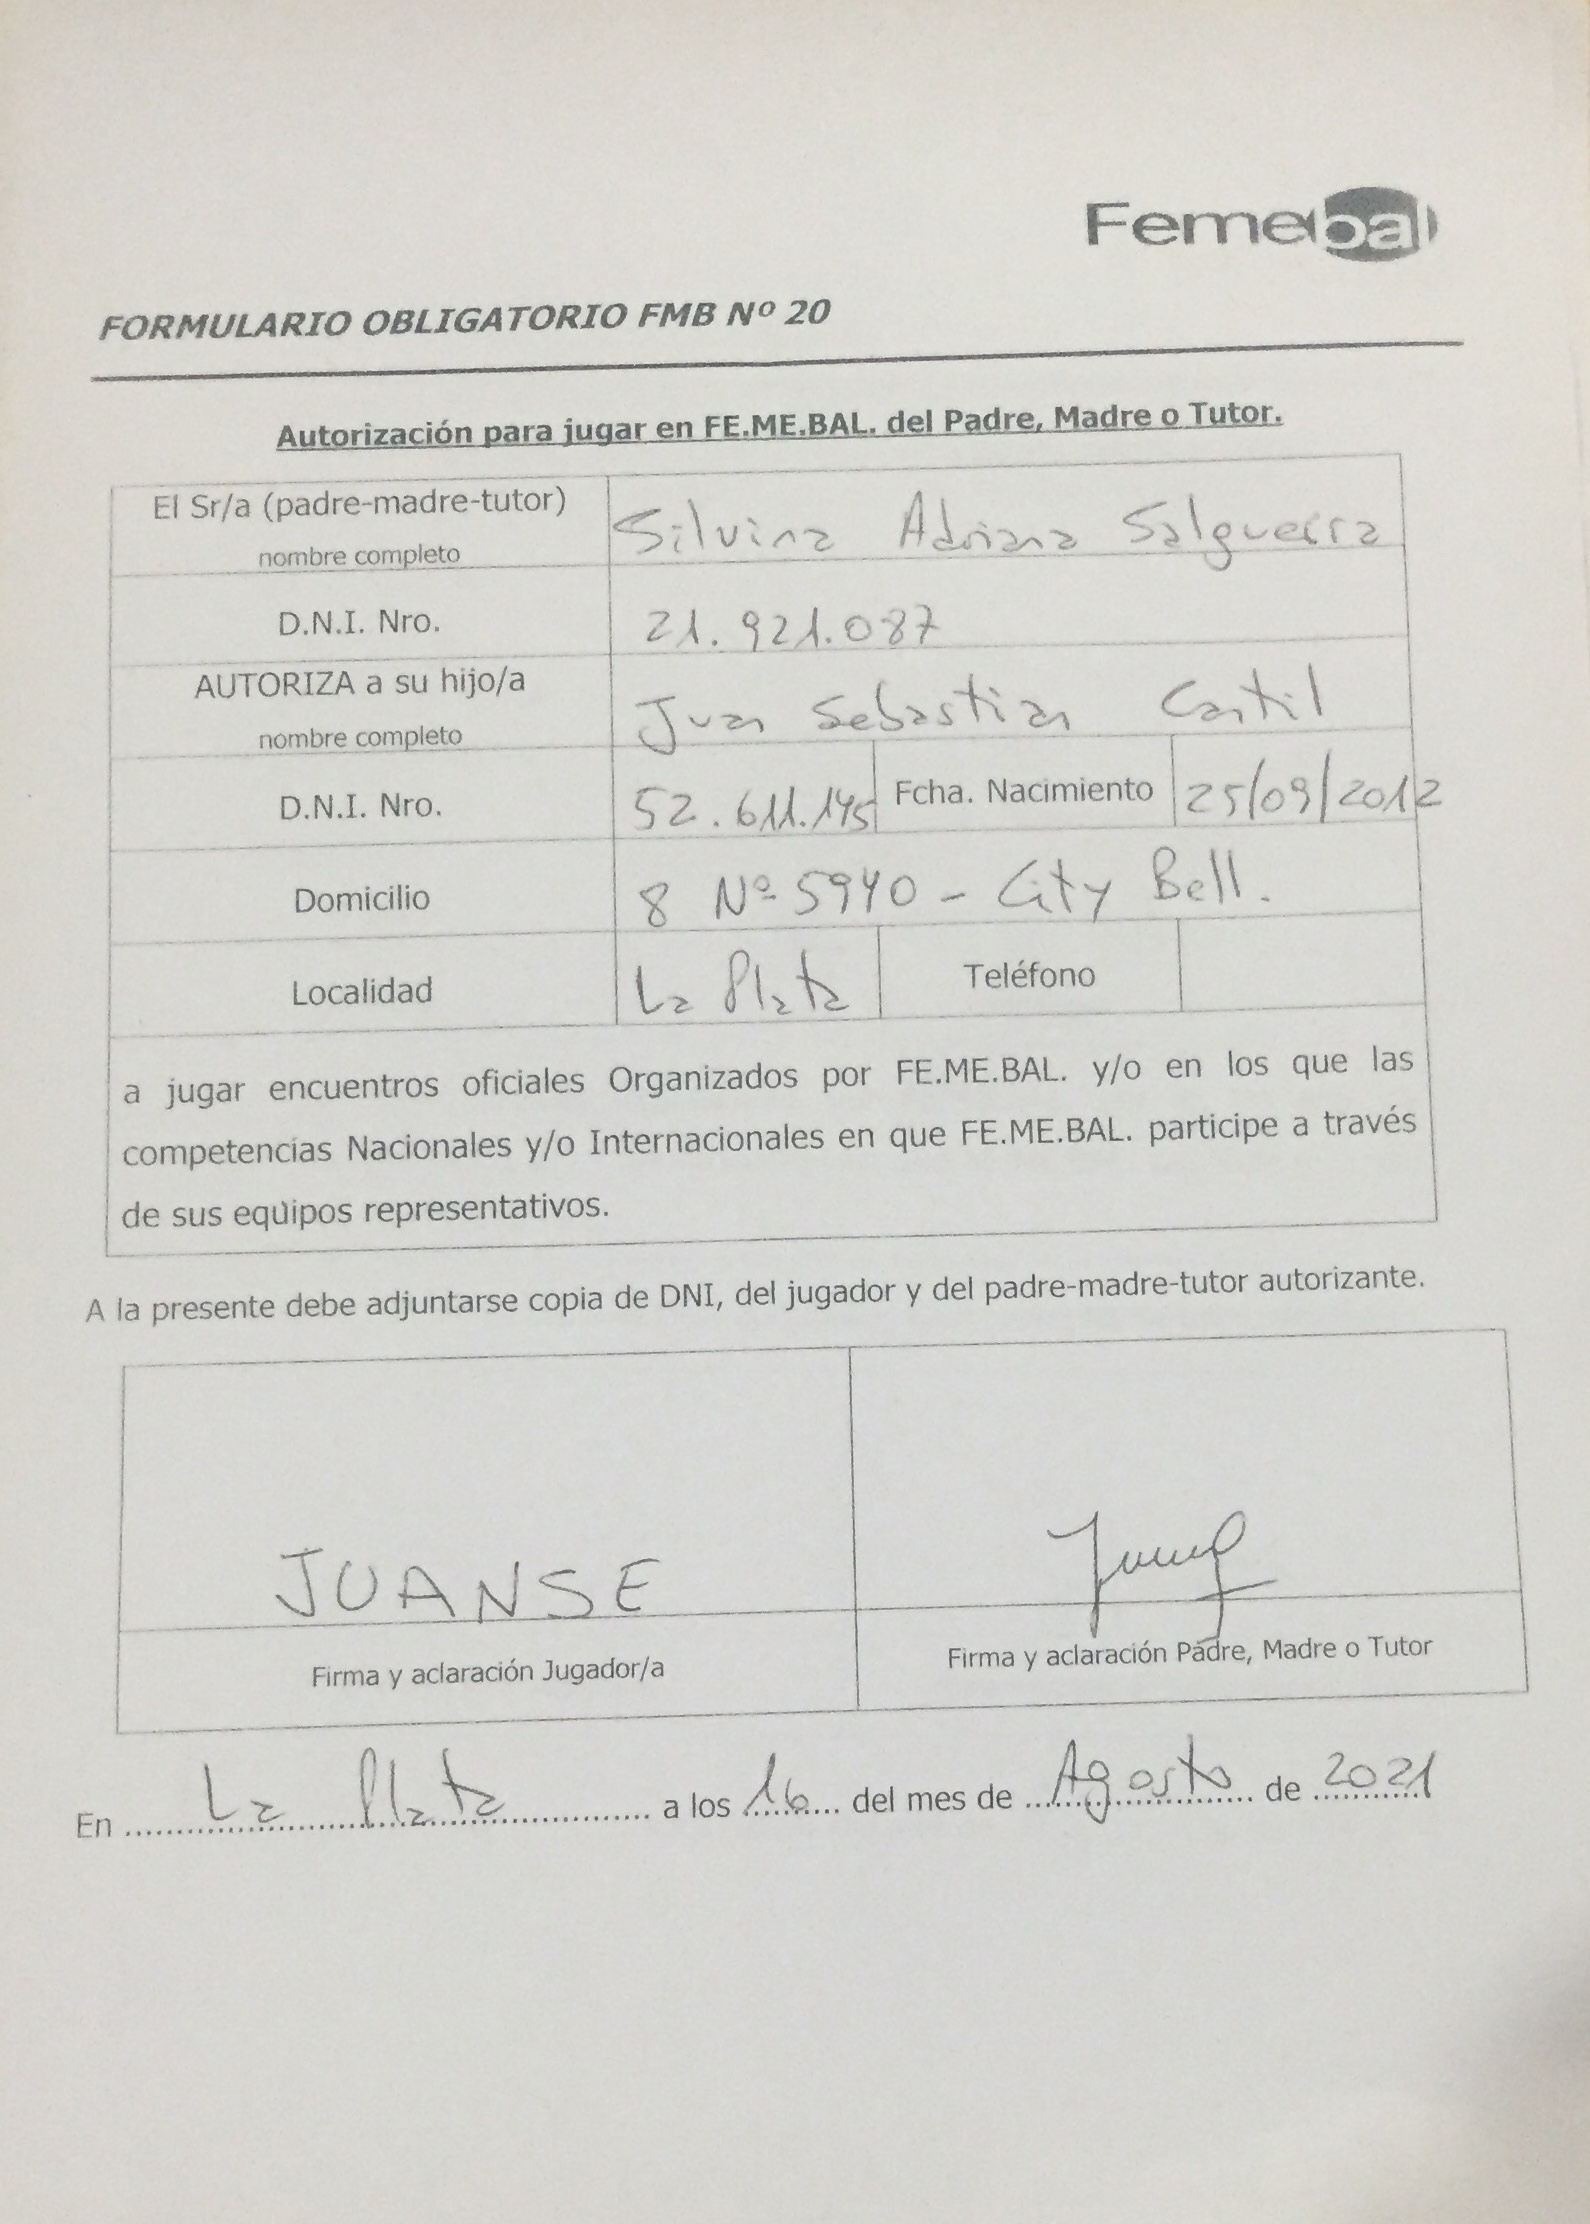 Femebal
FORMULARIO OBLIGATORIO FMB Nº 20
Autorización para jugar en FE.ME.BAL. del Padre, Madre o Tutor.
El Sr/a (padre-madre-tutor)
nombre completo
Silvina Adriana Salgueira
D.N.I. Nro.
21.921.087
AUTORIZA a su hijo/a
nombre completo
Juan Sebastian Castil
D.N.I. Nro.
52.611.145
Fcha. Nacimiento
25/09/2012
Domicilio
8 Nº 5940 - City Bell.
Localidad
La Plata
Teléfono
a jugar encuentros oficiales Organizados por FE.ME.BAL. y/o en los que las
competencias Nacionales y/o Internacionales en que FE.ME.BAL. participe a través
de sus equipos representativos.
A la presente debe adjuntarse copia de DNI, del jugador y del padre-madre-tutor autorizante.
JUANSE
Firma y aclaración Jugador/a
Firma y aclaración Padre, Madre o Tutor
En La Plata a los 16 del mes de Agosto de 2021